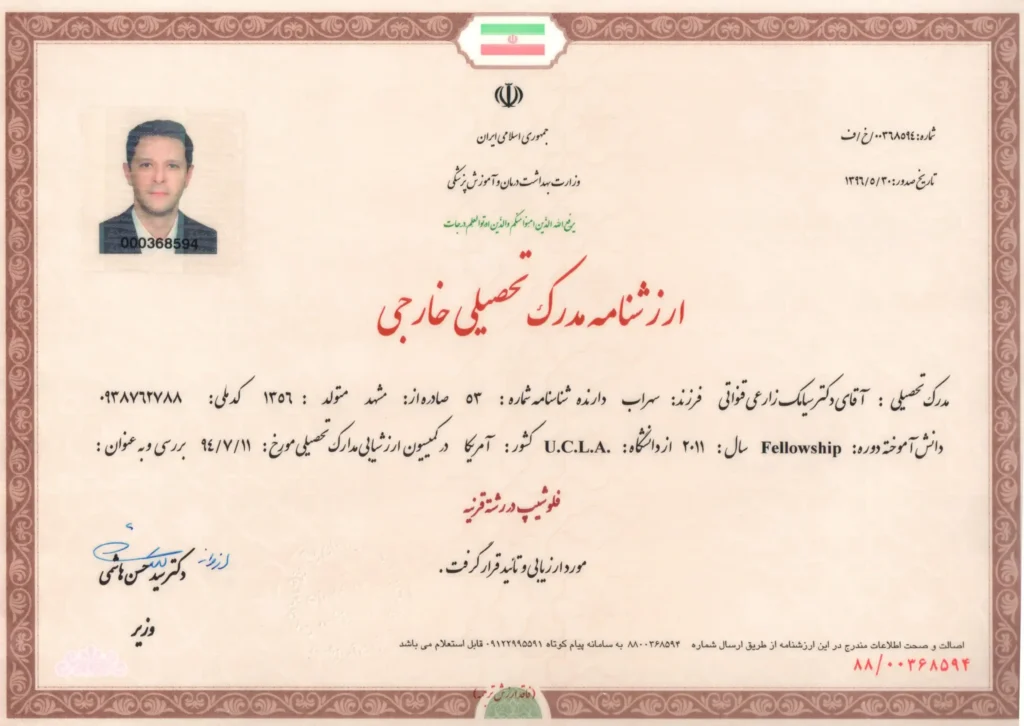 جمهوری اسلامی ایران
وزارت بهداشت درمان و آموزش پزشکی
شماره: ۰۰۳۶۸۵۹٤/خ/ف
تاریخ صدور: ۱۳۹٦/٥/۳۰
یرفع الله الذین امنوا منکم والذین اوتوا العلم درجات
000368594
ارزشنامه مدرک تحصیلی خارجی
مدرک تحصیلی : آقای دکتر سیامک زارعی قنواتی فرزند: سهراب دارنده شناسنامه شماره: ٥۳ صادره از: مشهد متولد : ۱۳٥٦ کد ملی: ۰۹۳۸۷٦۲۷۸۸
دانش آموخته دوره: Fellowship سال: ۲۰۱۱ از دانشگاه: U.C.L.A. کشور: آمریکا در کمیسیون ارزشیابی مدارک تحصیلی مورخ: ۹٤/۷/۱۱ بررسی و به عنوان :
فلوشیپ در رشته قرنیه
مورد ارزیابی و تائید قرار گرفت .
دکتر سید حسن هاشمی
وزیر
اصالت و صحت اطلاعات مندرج در این ارزشنامه از طریق ارسال شماره ۸۸۰۰۳۶۸۵۹۴ به سامانه پیام کوتاه ۰۹۱۲۲۹۹۵۵۹۱ قابل استعلام می باشد
۸۸/۰۰۳۶۸۵۹۴
(فاقد ارزش ترجمه)